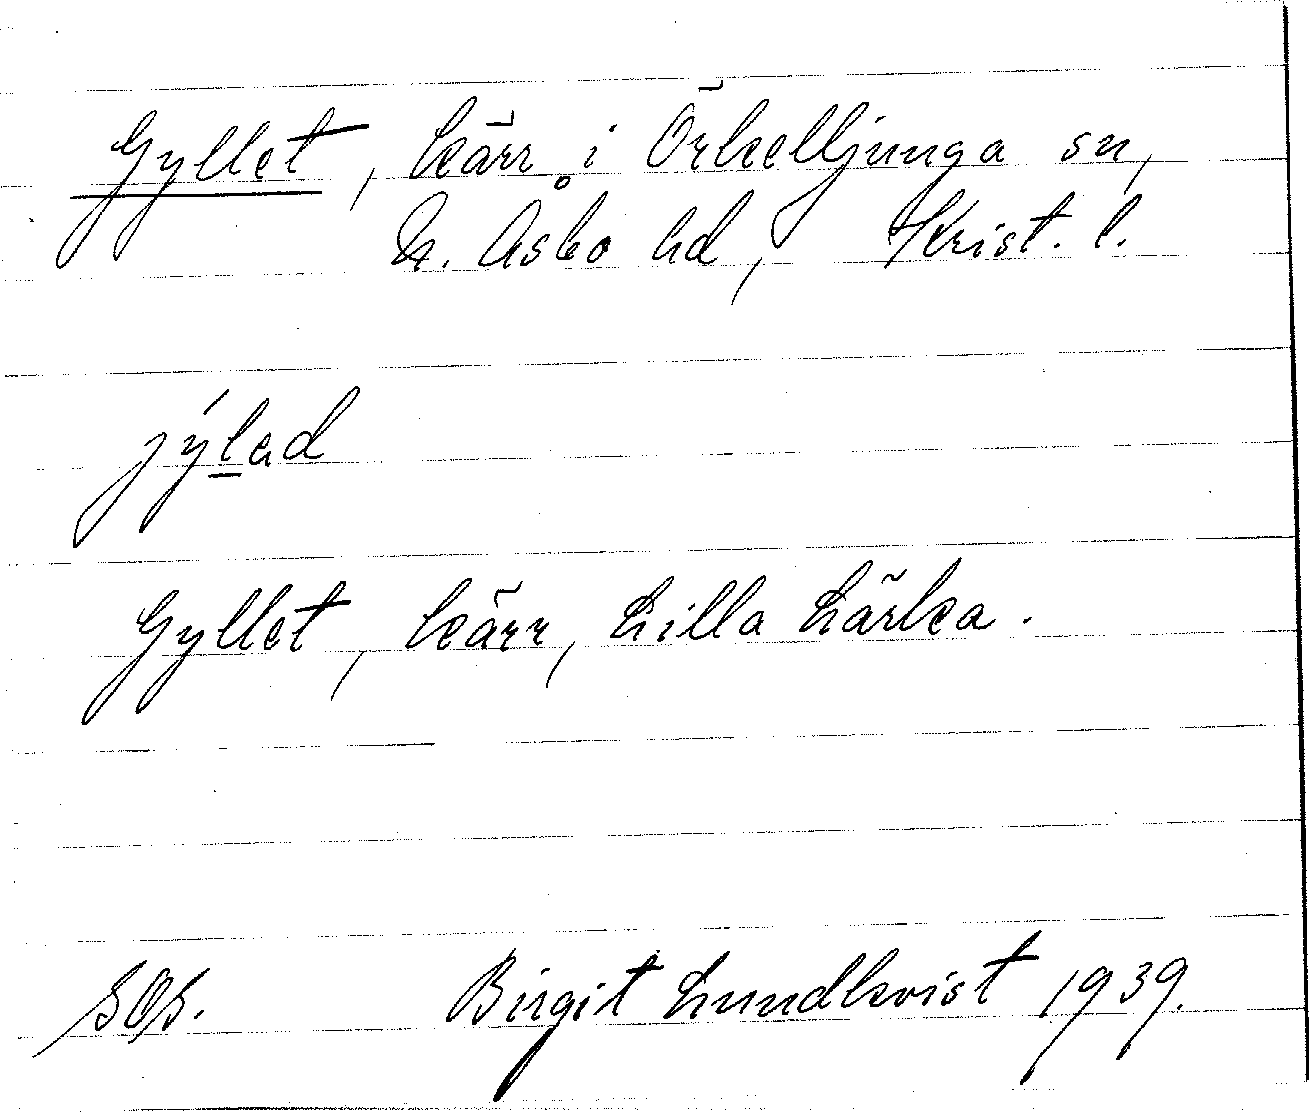 Gyllet, kärr i Örkelljunga sn,
N. Åsbo hd, Krist. l.
jýlad
Gyllet, kärr, Lilla Lärka.
SOS. Birgit Lundkvist 1939.